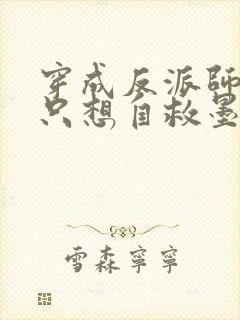 穿成反派師
只想自救墨
雪森寧寧